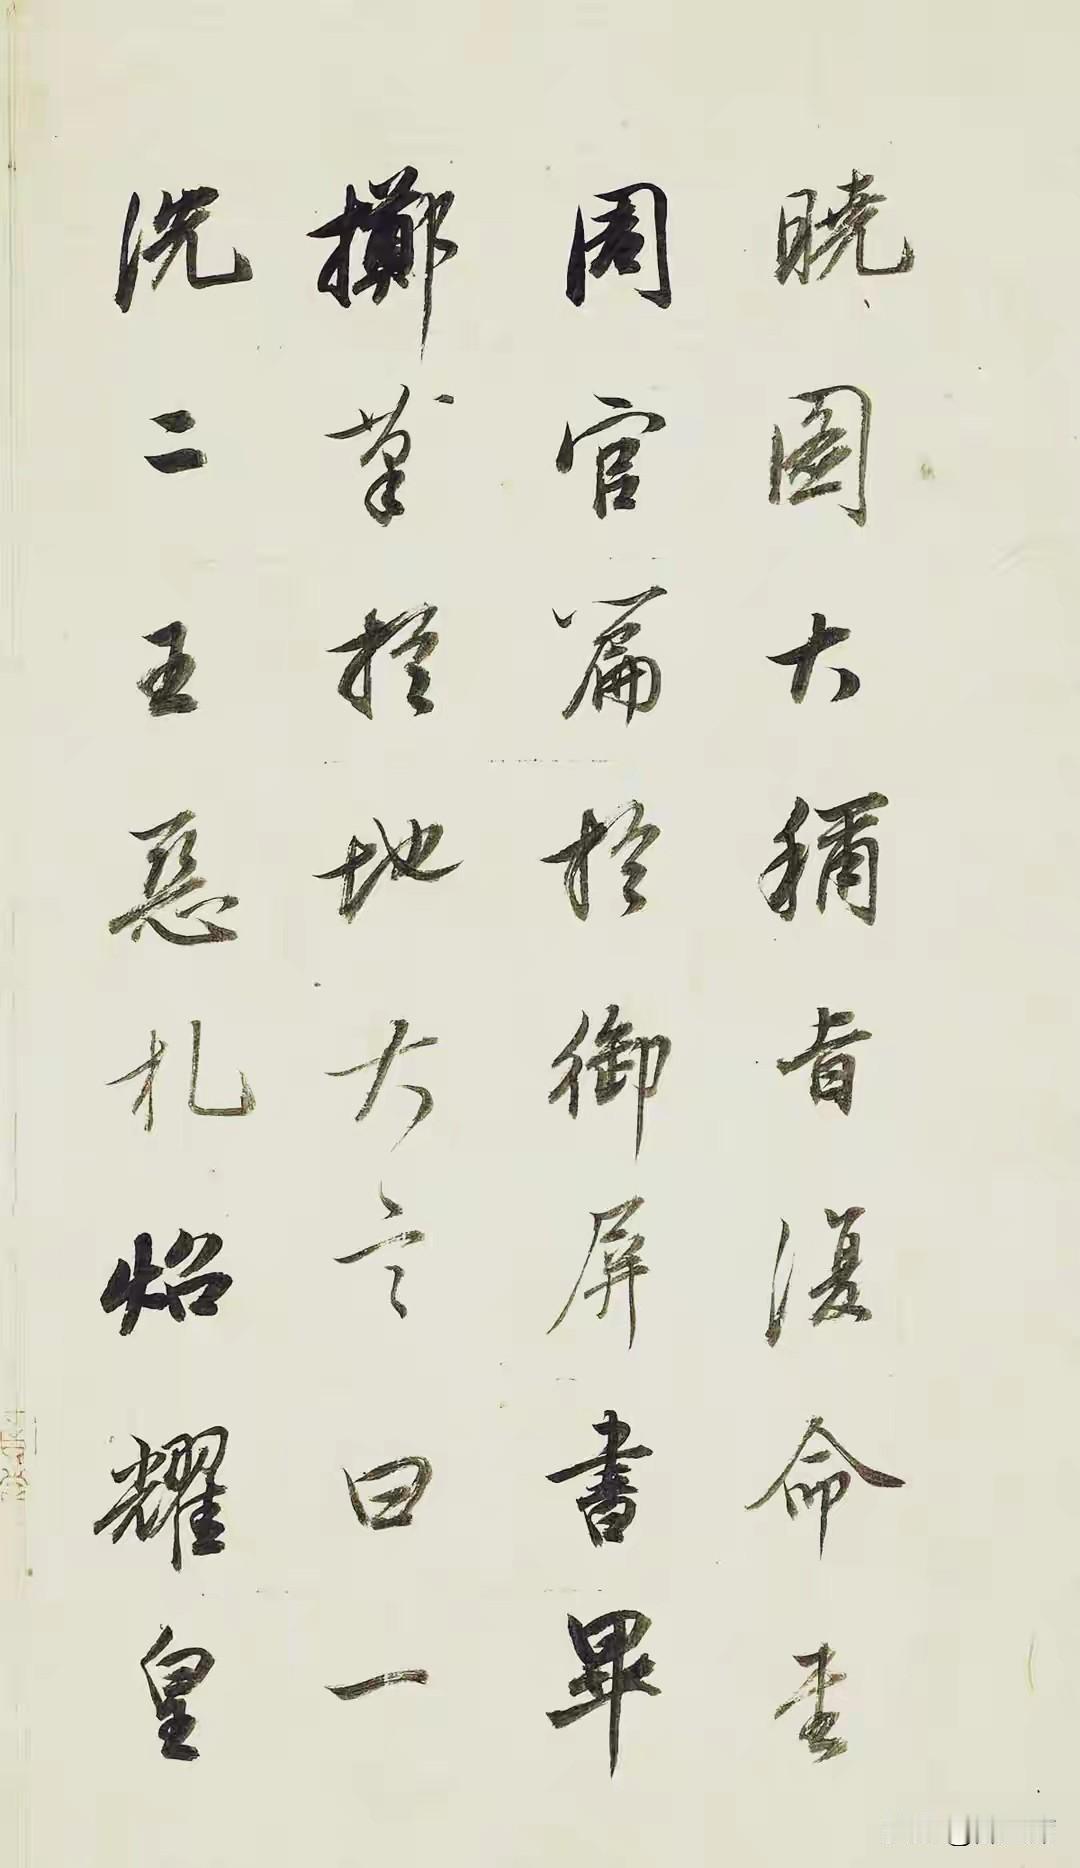 曉圖大稱旨復命書
周官篇於御屏書畢
擲筆於地大言曰一
洗二王惡札炤耀皇